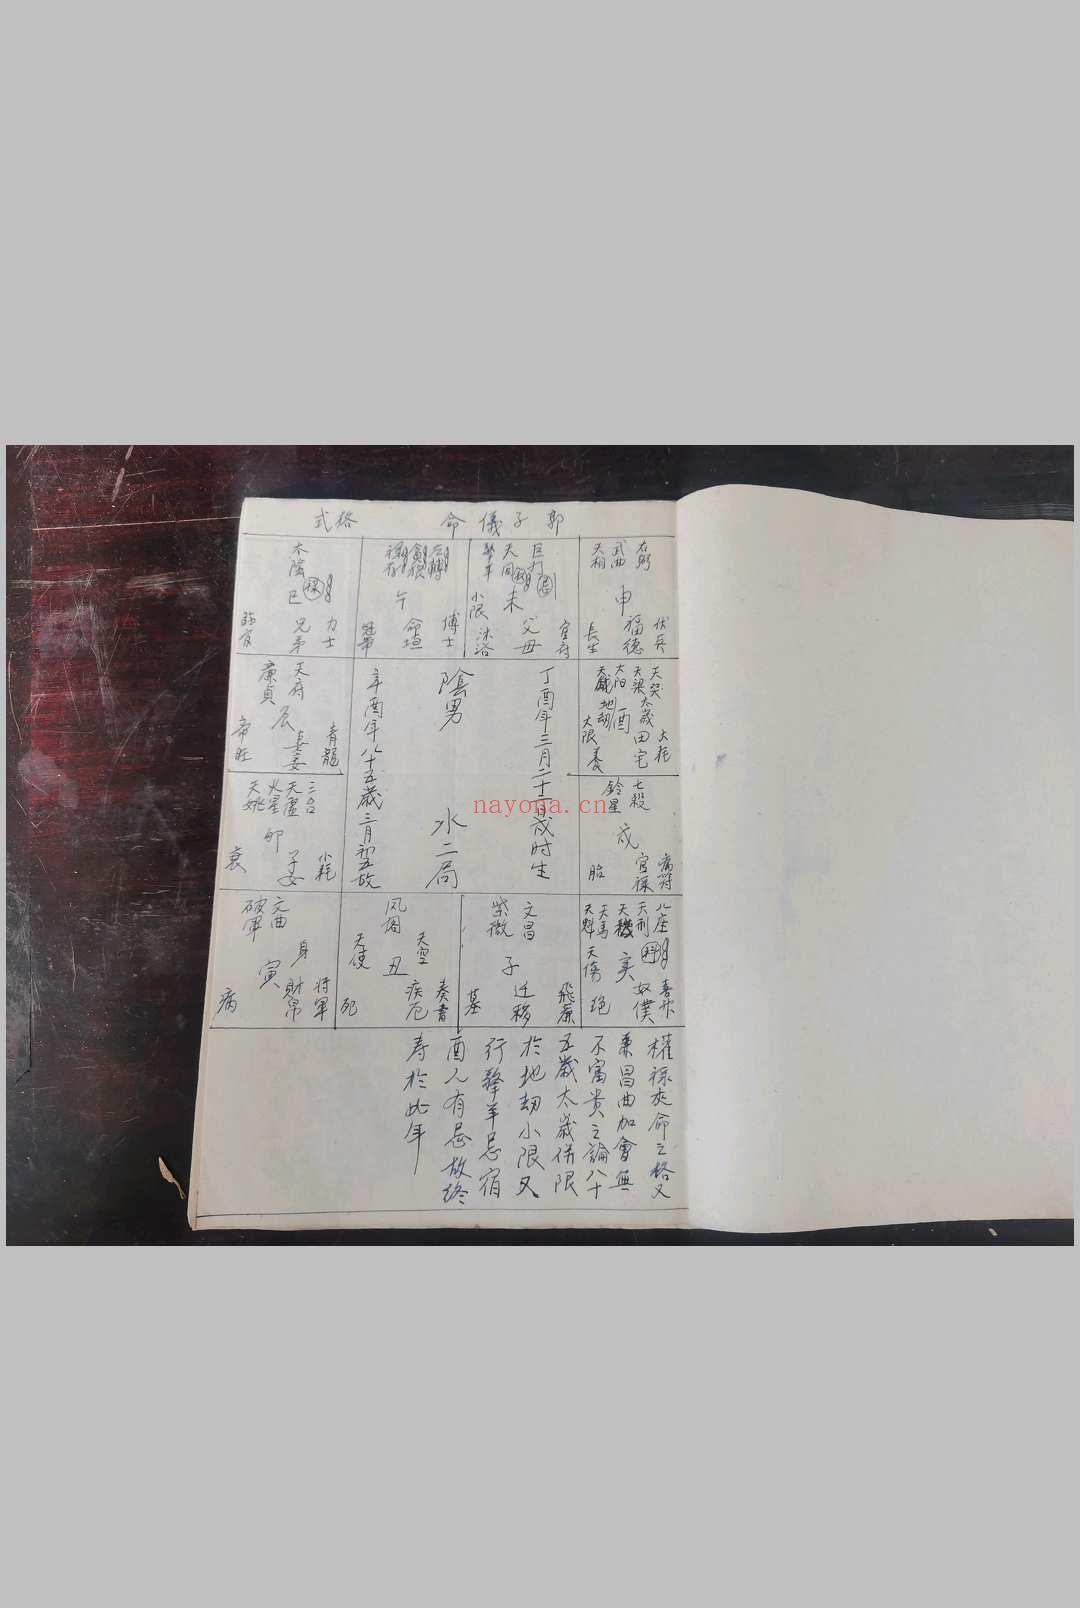 郭子儀命格式
右弼
武曲
天相
申
伏兵
福德
長生
巨門
天同
擎羊
未
官府
父母
小限
沐浴
左輔
貪狼
祿存
午
博士
命垣
冠帶
太陰
祿
巳
力士
兄弟
天哭
天梁太歲
太陽
地劫
酉
大耗
田宅
大限
養
丁酉年三月二十二日戌时生
陰男
水二局
辛酉年八十五歲三月初五故
天府
廉貞
辰
青龍
妻妾
帝旺
七殺
鈴星
戌
病符
官祿
胎
三台
天虛
火星
天姚
卯
小耗
子女
衰
八座
天刑
天機
天馬
天魁
科
亥
喜神
奴僕
天傷
絕
文昌
紫微
子
飛廉
迁移
墓
风阁
天空
天使
丑
奏書
疾厄
死
文曲
破軍
身
寅
將軍
財帛
病
權祿夾命之格又
兼昌曲加會無
不富贵之論八十
五歲太歲併限
於地劫小限又
行擎羊忌宿
酉人有忌故終
寿於此年
nayona.cn